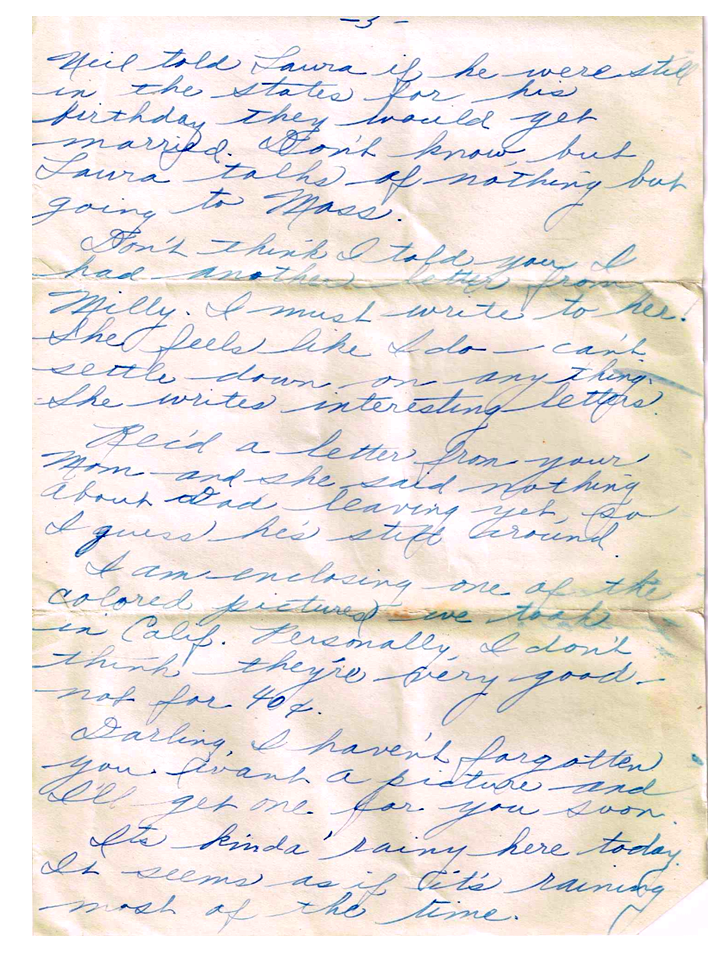 -3-
Neil told Laura if he were still
in the states for his
birthday they would get
married. Don't know, but
Laura talks of nothing but
going to Mass.
Don't think I told you I
had another letter from
Milly. I must write to her!
She feels like I do - can't
settle down on any thing.
She writes interesting letters.
Rec'd a letter from your
Mom and she said nothing
about Dad leaving yet, so
I guess he's still around.
I am enclosing one of the
colored pictures we took
in Calif. Personally, I don't
think they're very good -
not for 40¢.
Darling, I haven't forgotten
you want a picture and
I'll get one for you soon.
Its kinda' rainy here today.
It seems as if it's raining
most of the time.